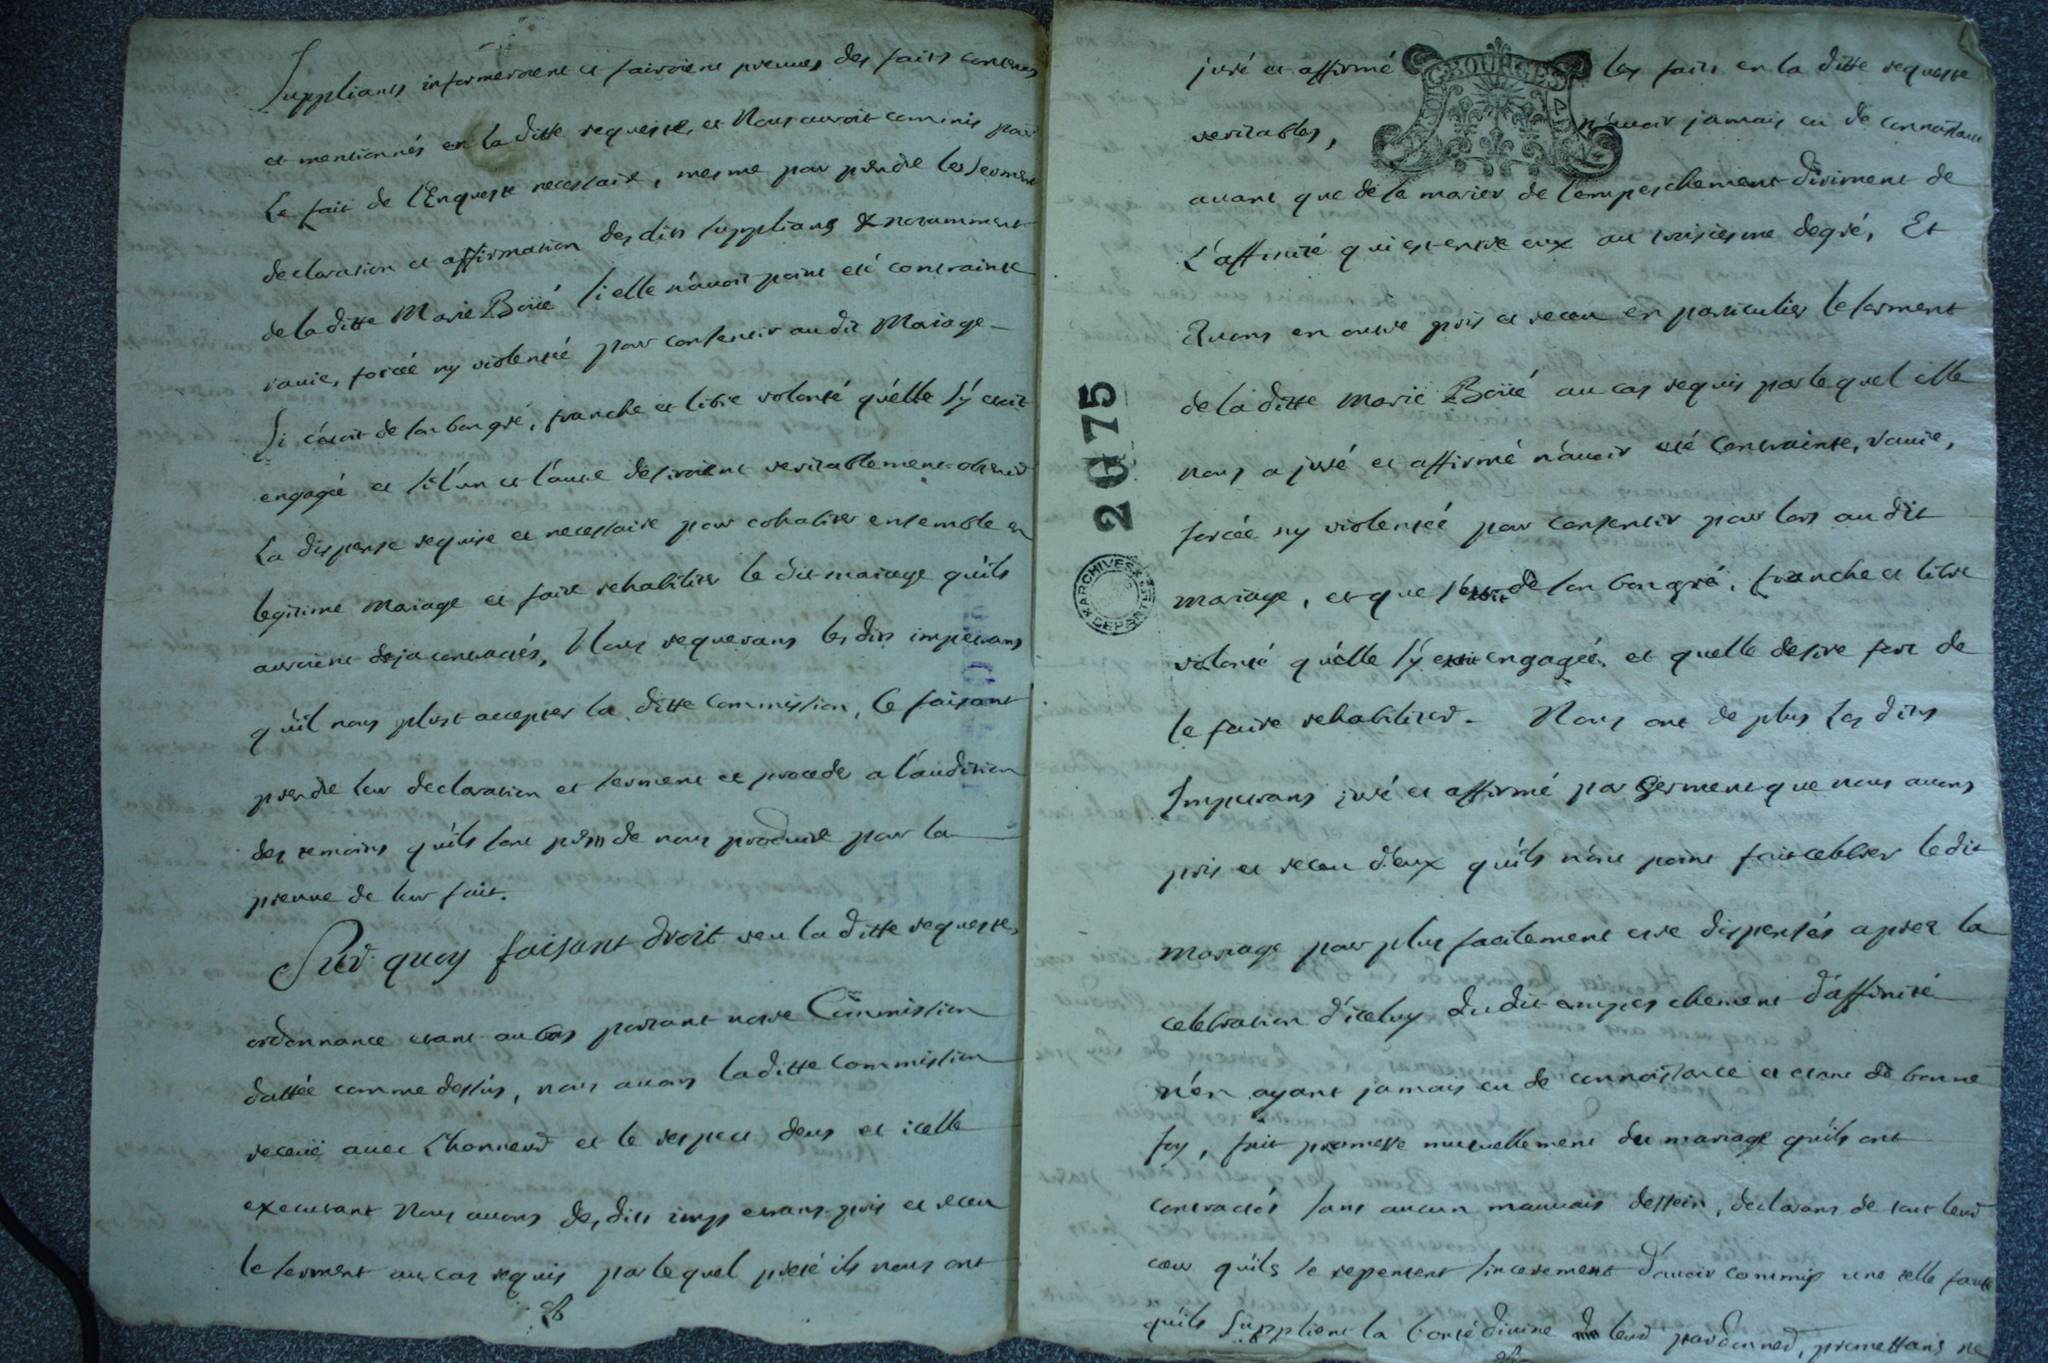 Supplians informeroient et fairoient preuves des faits contenus
et mentionnés en la ditte requeste, et Nous auroit commis pour
le fait de l'Enqueste necessaire, mesme pour prendre les serment
declaration et affirmation desdits supplians & notamment
de la ditte Marie Boüé si elle n'avoit point eté contrainte
ravie, forcée ny violentée pour consentir audit Mariage
si c'étoit de son bon gré, franche et libre volonté qu'elle s'y étoit
engagée et si l'un et l'autre desiroient veritablement obtenir
la dispense requise et necessaire pour cohabiter ensemble en
legitime Mariage et faire rehabiliter le dit mariage qu'ils
auroient deja contractés, Nous requerans les dits impetrans
qu'il nous plust accepter la ditte commission, ce faisant
prendre leur declaration et serment et proceder a l'audition
des temoins qu'ils sont de nous produire pour la
preuve de leur fait.
Sur quoy faisant droit veu la ditte requeste,
ordonnance etant au bas portant notre Commission
dattée comme dessus, nous avons la ditte commission
receuë avec l'honneur et le respect deus et icelle
executant Nous avons desdits impetrans pris et receu
le serment au cas requis par lequel preté ils nous ont
juré et affirmé les faits en la ditte requeste
veritables, n'avoir jamais eu de connoissance
avant que de se marier de l'empeschement dirimant de
l'affinité qui est entre eux au troisiesme degré, Et
Avons en outre pris et receu en particulier le serment
de la ditte Marie Boüé au cas requis par lequel elle
nous a juré et affirmé n'avoir eté contrainte, ravie,
forcée ny violentée pour consentir pour lors au dit
mariage, et que de son bon gré, franche et libre
volonté qu'elle s'y engagée, et quelle desire fort de
le faire rehabiliter. Nous ont de plus les dits
Impetrans juré et affirmé par serment que nous avons
pris et receu d'eux qu'ils n'ont point fait celebrer le dit
Mariage pour plus facilement etre dispensés apres la
celebration d'iceluy du dit empeschement d'affinité
n'en ayant jamais eu de connoissance et etant de bonne
foy, fait promesse mutuellement du mariage qu'ils ont
contractés sans aucun mauvais dessein, declarans de tout leur
coeur qu'ils se repentent sincerement d'avoir commis une telle faute
qu'ils supplient la bonté divine leur pardonner, promettans ne
BOURGES
2 G 175
ARCHIVES